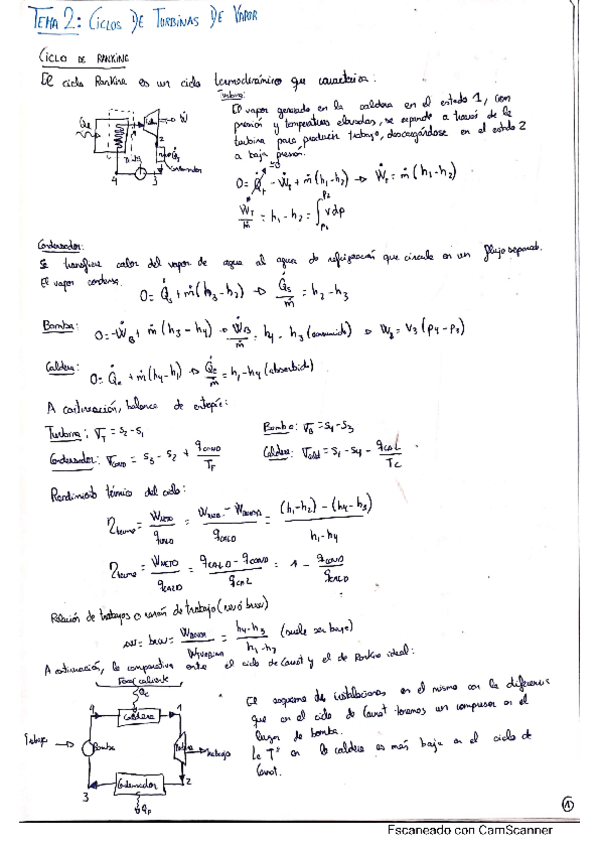 TEMA 2: CICLOS DE TURBINAS DE VAPOR
CICLO DE RANKINE
El ciclo Rankine es un ciclo termodinámico que caracteriza:
Turbina:
El vapor generado en la caldera en el estado 1, con
presión y temperatura elevadas, se expande a través de la
turbina para producir trabajo, descargándose en el estado 2
a baja presión.
Q̇e
Ẇ
Q̇s
condensador
4 3
0 = Q̇T - ẆT + ṁ(h1-h2) → ẆT = ṁ(h1-h2)
ẆT/ṁ = h1-h2 = ∫ v dp
Condensador:
Se transfiere calor del vapor de agua al agua de refrigeración que circula en un flujo separado.
El vapor condensa.
0 = Q̇s + ṁ(h3-h2) → Q̇s/ṁ = h2-h3
Bomba: 0 = -ẆB + ṁ(h3-h4) → ẆB/ṁ = h4-h3 (consumido) → WB = v3(p4-p3)
Caldera: 0 = Q̇e + ṁ(h4-h1) → Q̇e/ṁ = h1-h4 (absorbido)
A continuación, balance de entropía:
Turbina: σT = s2-s1 Bomba: σB = s4-s3
Condensador: σCOND = s3-s2 + qCOND/TF Caldera: σCALD = s1-s4 - qCAL/TC
Rendimiento térmico del ciclo:
ηterm = WNETO/qCALD = (WTURB - WBOMBA)/qCALD = ((h1-h2) - (h4-h3))/(h1-h4)
ηterm = WNETO/qCALD = (qCALD - qCOND)/qCAL = 1 - qCOND/qCALD
Relación de trabajos o razón de trabajo (rw ó bwr)
rw = bwr = WBOMBA/WTURBINA = (h4-h3)/(h1-h2) (suele ser bajo)
A continuación, la comparativa entre el ciclo de Carnot y el de Rankine ideal:
Foco caliente
Qc
4 Caldera 1
Trabajo → Bomba
Turbina → trabajo
Condensador
3 2
QF
El esquema de instalaciones es el mismo con la diferencia
que en el ciclo de Carnot tenemos un compresor en el
lugar de bomba.
La Tª en la caldera es más baja en el ciclo de
Carnot.
1
Escaneado con CamScanner